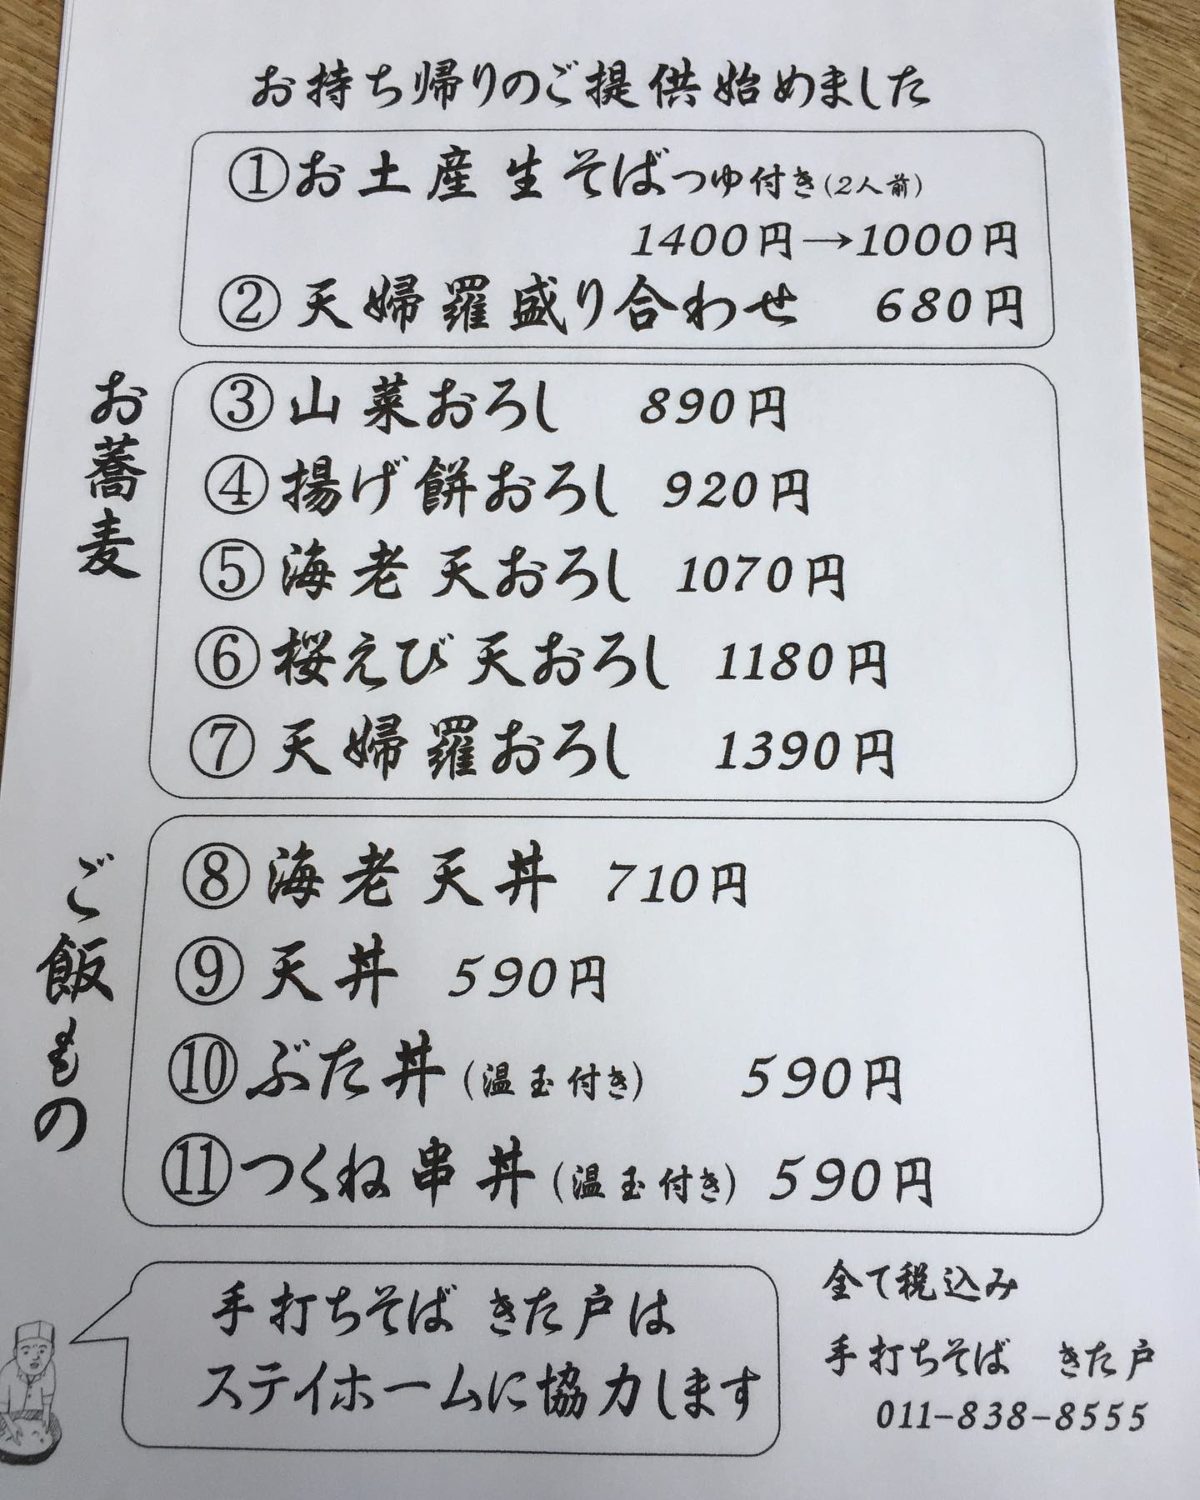 お持ち帰りのご提供始めました
①お土産生そばつゆ付き(2人前)
1400円→1000円
②天婦羅盛り合わせ 680円
お蕎麦
③山菜おろし 890円
④揚げ餅おろし 920円
⑤海老天おろし 1070円
⑥桜えび天おろし 1180円
⑦天婦羅おろし 1390円
ご飯もの
⑧海老天丼 710円
⑨天丼 590円
⑩ぶた丼(温玉付き) 590円
⑪つくね串丼(温玉付き) 590円
手打ちそば きた戸は
ステイホームに協力します
全て税込み
手打ちそば きた戸
011-838-8555